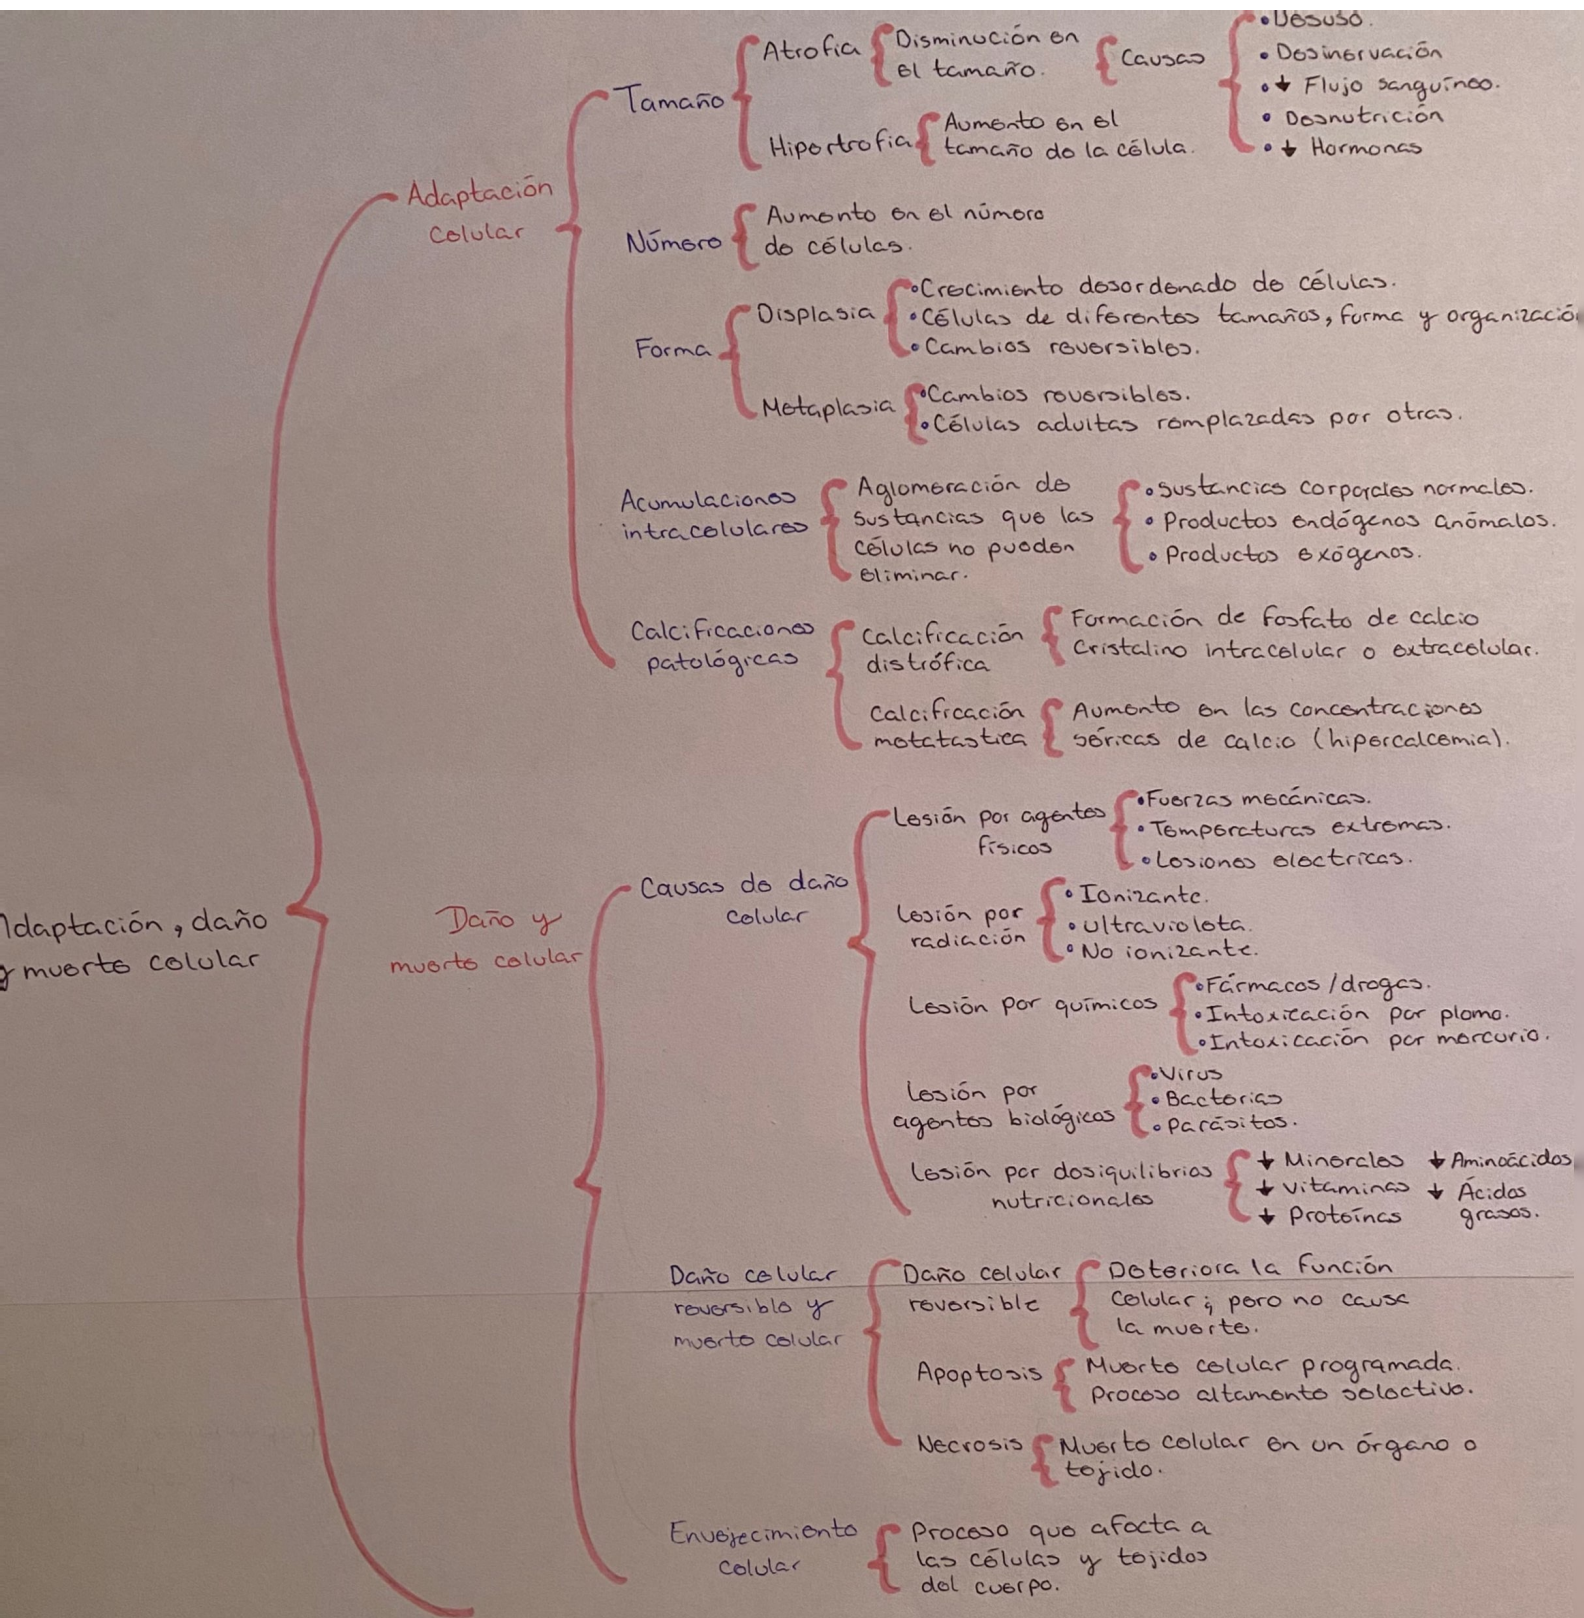 Adaptación, daño
y muerte celular
Adaptación
celular
Tamaño
Atrofia
Disminución en
el tamaño.
Causas
• Desuso.
• Desinervación
• ↓ Flujo sanguíneo.
• Desnutrición
• ↓ Hormonas
Hipertrofia
Aumento en el
tamaño de la célula.
Número
Aumento en el número
de células.
Forma
Displasia
• Crecimiento desordenado de células.
• Células de diferentes tamaños, forma y organizació
• Cambios reversibles.
Metaplasia
• Cambios reversibles.
• Células adultas remplazadas por otras.
Acumulaciones
intracelulares
Aglomeración de
sustancias que las
células no pueden
eliminar.
• Sustancias corporales normales.
• Productos endógenos anómalos.
• Productos exógenos.
Calcificaciones
patológicas
Calcificación
distrófica
Formación de fosfato de calcio
cristalino intracelular o extracelular.
Calcificación
metatastica
Aumento en las concentraciones
séricas de calcio (hipercalcemia).
Daño y
muerte celular
Causas de daño
celular
Lesión por agentes
físicos
• Fuerzas mecánicas.
• Temperaturas extremas.
• Lesiones electricas.
Lesión por
radiación
• Ionizante.
• Ultravioleta.
• No ionizante.
Lesión por químicos
• Fármacos/drogas.
• Intoxicación por plomo.
• Intoxicación por mercurio.
Lesión por
agentes biológicos
• Virus
• Bacterias
• Parásitos.
Lesión por desiquilibrios
nutricionales
↓ Minerales ↓ Aminoácidos
↓ Vitaminas ↓ Ácidos
↓ Proteínas grasos.
Daño celular
reversible y
muerte celular
Daño celular
reversible
Deteriora la función
celular; pero no causa
la muerte.
Apoptosis
Muerte celular programada.
Proceso altamente selectivo.
Necrosis
Muerte celular en un órgano o
tejido.
Envejecimiento
celular
Proceso que afecta a
las células y tejidos
del cuerpo.